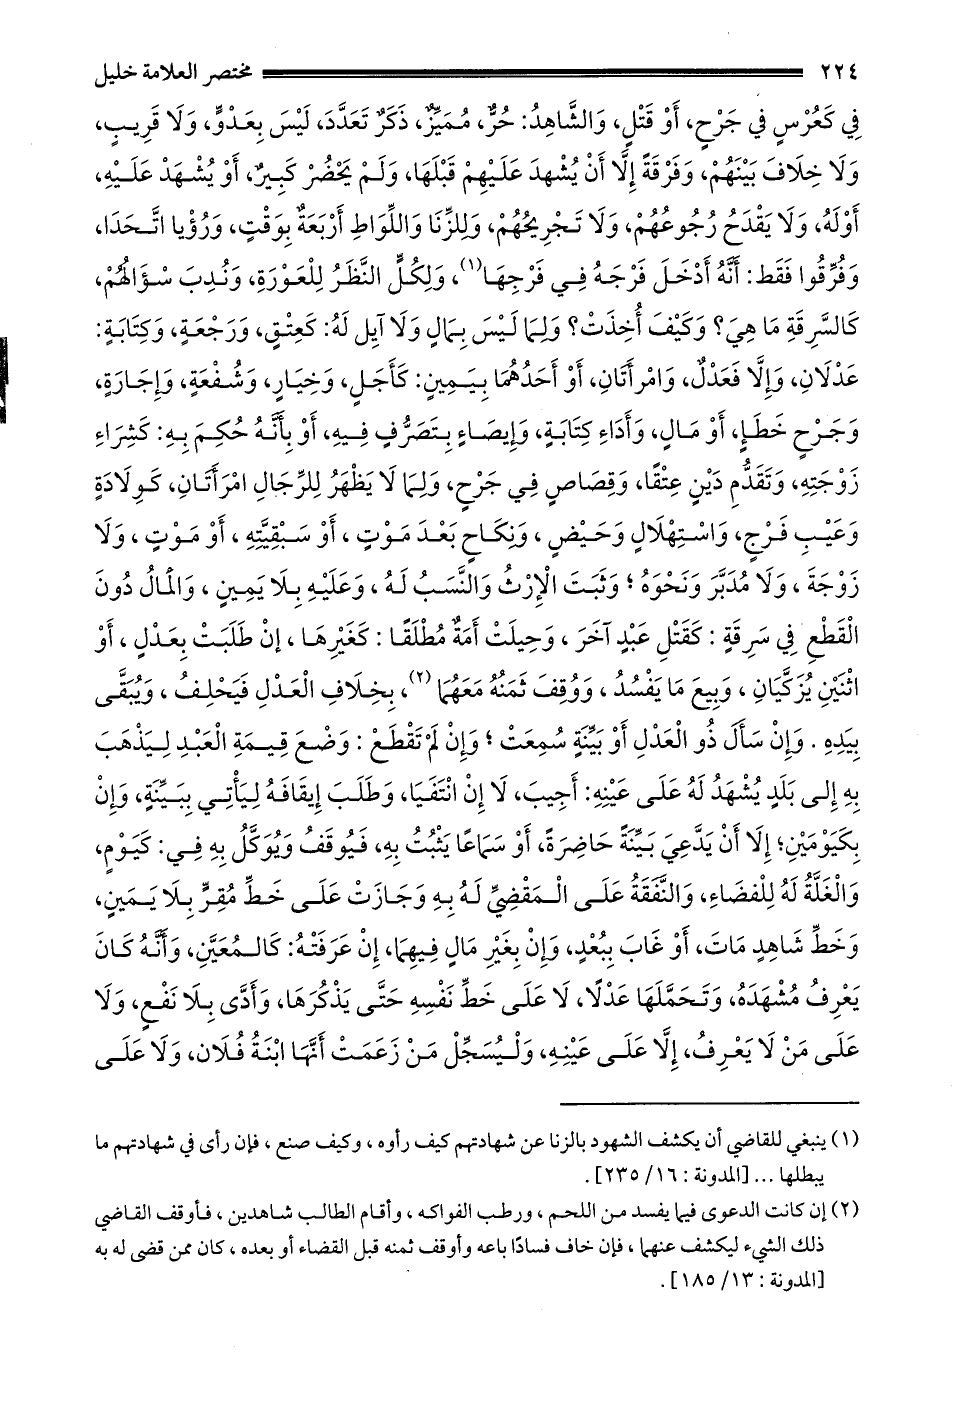 ٢٢٤ مختصر العلامة خليل
فِي كَعُرْسٍ فِي جَرْحٍ، أَوْ قَتْلٍ، وَالشَّاهِدُ: حُرٌّ، مُمَيِّزٌ، ذَكَرٌ تَعَدَّدَ، لَيْسَ بِعَدُوٍّ، وَلَا قَرِيبٍ،
وَلَا خِلَافَ بَيْنَهُمْ، وَفَرْقَةً إِلَّا أَنْ يُشْهِدَ عَلَيْهِمْ قَبْلَهَا، وَلَمْ يَحْضُرْ كَبِيرٌ، أَوْ يُشْهَدَ عَلَيْهِ،
أَوْلَهُ، وَلَا يَقْدَحُ رُجُوعُهُمْ، وَلَا تَجْرِيحُهُمْ، وَلِلزِّنَا وَاللِّوَاطِ أَرْبَعَةٌ بِوَقْتٍ، وَرُؤْيا اتَّحَدَا،
وَفُرِّقُوا فَقَط: أَنَّهُ أَدْخَلَ فَرْجَهُ فِي فَرْجِهَا(١)، وَلِكُلٍّ النَّظَرُ لِلْعَوْرَةِ، وَنُدِبَ سُؤَالُهُمْ،
كَالسَّرِقَةِ مَا هِيَ؟ وَكَيْفَ أُخِذَتْ؟ وَلِمَا لَيْسَ بِمَالٍ وَلَا آيِلٍ لَهُ: كَعِتْقٍ، وَرَجْعَةٍ، وَكِتَابَةٍ:
عَدْلَانِ، وَإِلَّا فَعَدْلٌ، وَامْرَأَتَانِ، أَوْ أَحَدُهُمَا بِيَمِينٍ: كَأَجَلٍ، وَخِيَارٍ، وَشُفْعَةٍ، وَإِجَارَةٍ،
وَجَرْحِ خَطَإٍ، أَوْ مَالٍ، وَأَدَاءِ كِتَابَةٍ، وَإِيصَاءٍ بِتَصَرُّفٍ فِيهِ، أَوْ بِأَنَّهُ حُكِمَ بِهِ: كَشِرَاءِ
زَوْجَتِهِ، وَتَقَدُّمِ دَيْنٍ عِتْقًا، وَقِصَاصٍ فِي جَرْحٍ، وَلِمَا لَا يَظْهَرُ لِلرِّجَالِ امْرَأَتَانِ، كَوِلَادَةٍ
وَعَيْبِ فَرْجٍ، وَاسْتِهْلَالٍ وَحَيْضٍ ، وَنِكَاحٍ بَعْدَ مَوْتٍ ، أَوْ سَبْقِيَّتِهِ ، أَوْ مَوْتٍ ، وَلَا
زَوْجَةَ ، وَلَا مُدَبَّرَ وَنَحْوَهُ ؛ وَثَبَتَ الْإِرْثُ وَالنَّسَبُ لَهُ ، وَعَلَيْهِ بِلَا يَمِينٍ ، وَالْمَالُ دُونَ
الْقَطْعِ فِي سَرِقَةٍ : كَقَتْلِ عَبْدٍ آخَرَ ، وَحِيلَتْ أَمَةٌ مُطْلَقًا : كَغَيْرِهَا ، إِنْ طَلَبَتْ بِعَدْلٍ ، أَوْ
اثْنَيْنِ يُزَكَّيَانِ ، وَبِيعَ مَا يَفْسُدُ ، وَوُقِفَ ثَمَنُهُ مَعَهُمَا (٢)، بِخِلَافِ الْعَدْلِ فَيَحْلِفُ ، وَيُبَقَّى
بِيَدِهِ . وَإِنْ سَأَلَ ذُو الْعَدْلِ أَوْ بَيِّنَةٍ سُمِعَتْ ؛ وَإِنْ لَمْ تَقْطَعْ : وَضْعَ قِيمَةِ الْعَبْدِ لِيَذْهَبَ
بِهِ إِلَى بَلَدٍ يُشْهَدُ لَهُ عَلَى عَيْنِهِ: أُجِيبَ، لَا إِنْ انْتَفَيَا، وَطَلَبَ إِيقَافَهُ لِيَأْتِي بِبَيِّنَةٍ، وَإِنْ
بِكَيَوْمَيْنِ؛ إِلَّا أَنْ يَدَّعِيَ بَيِّنَةً حَاضِرَةً، أَوْ سَمَاعًا يَثْبُتُ بِهِ، فَيُوقَفُ وَيُوَكَّلُ بِهِ فِي: كَيَوْمٍ،
وَالْغَلَّةُ لَهُ لِلْقَضَاءِ، وَالنَّفَقَةُ عَلَى الْمَقْضِيِّ لَهُ بِهِ وَجَازَتْ عَلَى خَطِّ مُقِرٍّ بِلَا يَمِينٍ،
وَخَطِّ شَاهِدٍ مَاتَ، أَوْ غَابَ بِبُعْدٍ، وَإِنْ بِغَيْرِ مَالٍ فِيهِمَا، إِنْ عَرَفَتْهُ: كَالْمُعَيَّنِ، وَأَنَّهُ كَانَ
يَعْرِفُ مُشْهَدَهُ، وَتَحَمَّلَهَا عَدْلًا، لَا عَلَى خَطِّ نَفْسِهِ حَتَّى يَذْكُرَهَا، وَأَدَّى بِلَا نَفْعٍ، وَلَا
عَلَى مَنْ لَا يَعْرِفُ، إِلَّا عَلَى عَيْنِهِ، وَلْيُسَجِّلْ مَنْ زَعَمَتْ أَنَّهَا ابْنَةُ فُلَانٍ، وَلَا عَلَى
(١) ينبغي للقاضي أن يكشف الشهود بالزنا عن شهادتهم كيف رأوه ، وكيف صنع ، فإن رأى في شهادتهم ما
يبطلها ... [المدونة : ١٦/ ٢٣٥] .
(٢) إن كانت الدعوى فيما يفسد من اللحم ، ورطب الفواكه ، وأقام الطالب شاهدين ، فأوقف القاضي
ذلك الشيء ليكشف عنهما ، فإن خاف فسادًا باعه وأوقف ثمنه قبل القضاء أو بعده ، كان ممن قضى له به
[المدونة : ١٣/ ١٨٥] .